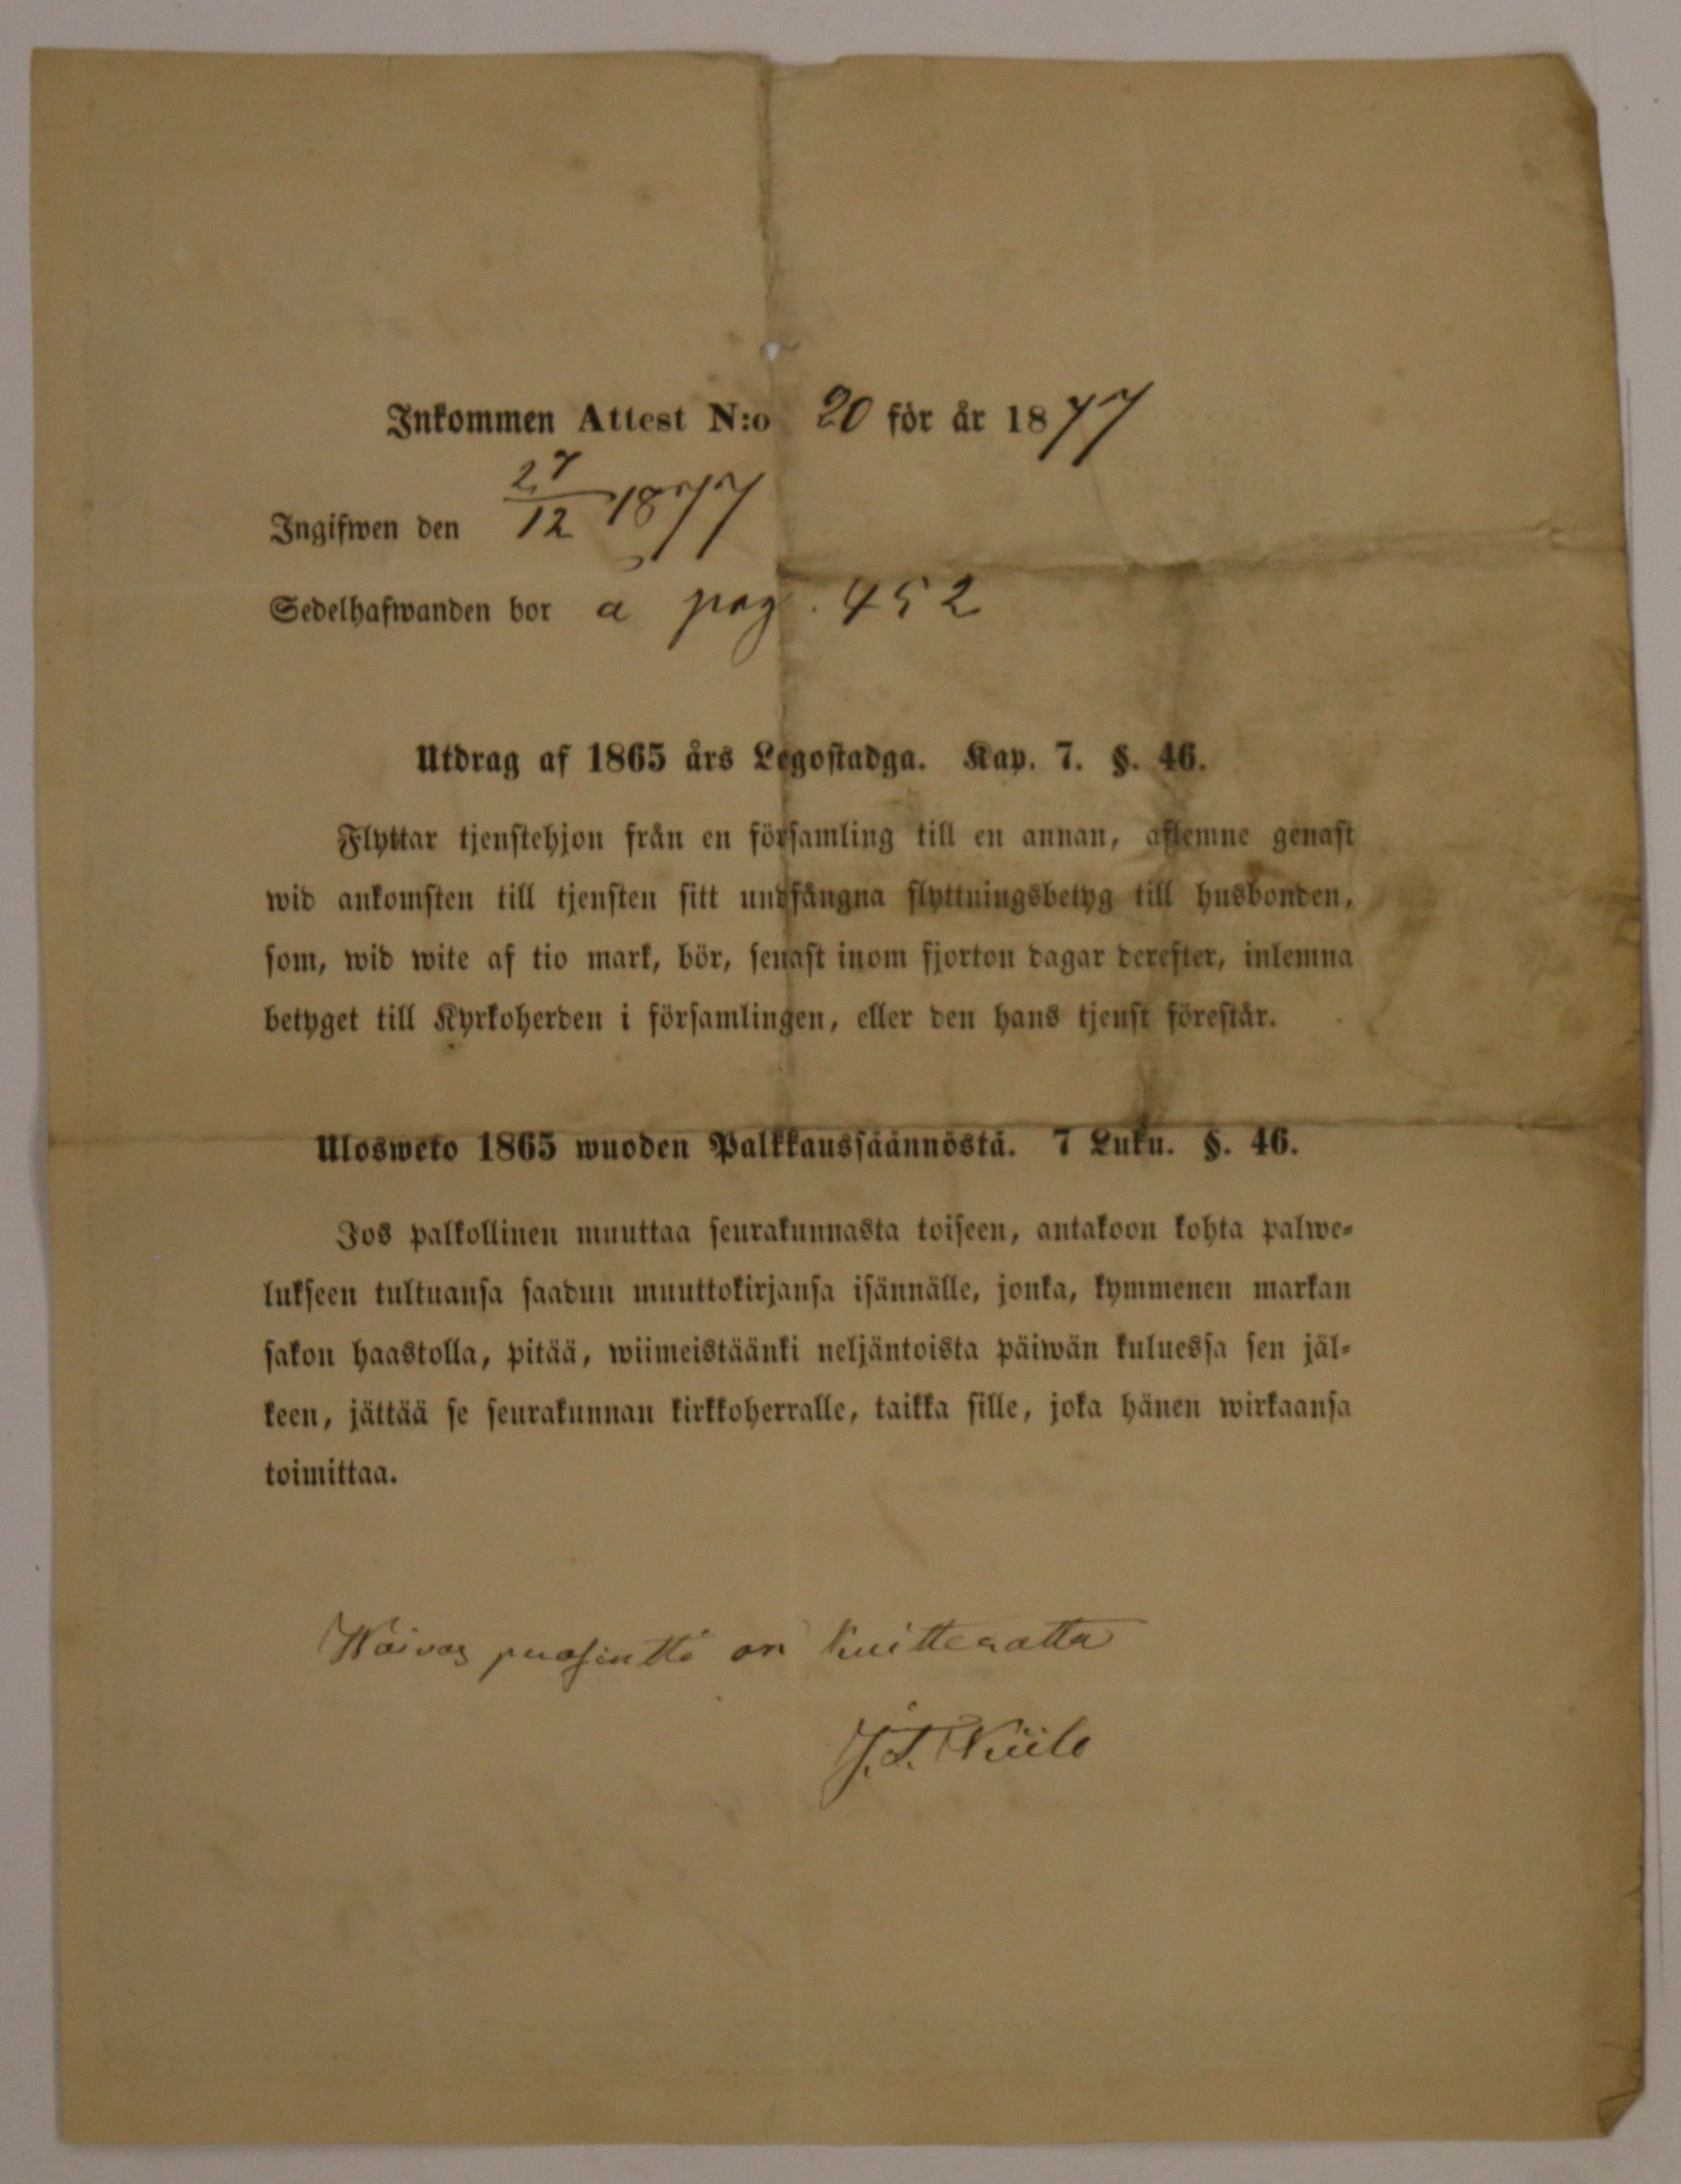 Inkommen Attest N:o 20 för år 1877
Ingifwen den 27/12 1877
Sedelhafwanden bor å pag. 452
Utdrag af 1865 års Legostadga. Kap. 7. §. 46.
Flyttar tjenstehjon från en församling till en annan, aflemne genast
wid ankomsten till tjensten sitt undfångna flyttningsbetyg till husbonden,
som, wid wite af tio mark, bör, senast inom fjorton dagar derefter, inlemna
betyget till Kyrkoherden i församlingen, eller den hans tjenst förestår.
Ulosweto 1865 wuoden Palkkaussäännöstä. 7 Luku. §. 46.
Jos palkollinen muuttaa seurakunnasta toiseen, antakoon kohta palwe-
lukseen tultuansa saadun muuttokirjansa isännälle, jonka, kymmenen markan
sakon haastolla, pitää, wiimeistäänki neljäntoista päiwän kuluessa sen jäl-
keen, jättää se seurakunnan kirkkoherralle, taikka sille, joka hänen wirkaansa
toimittaa.
on kuitteratta